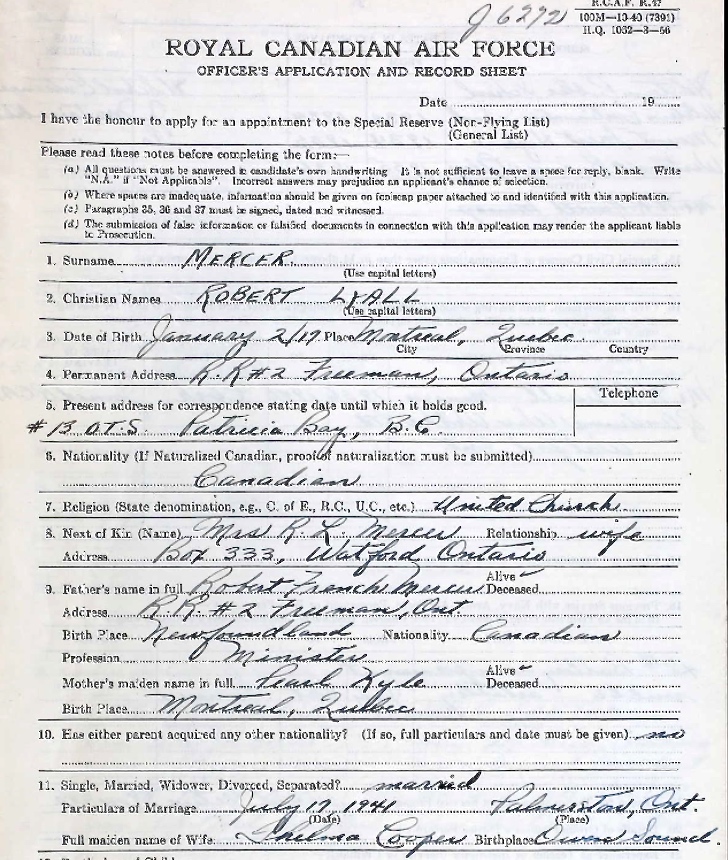 J6292
R.C.A.F. R.47
100M—10-40 (7391)
H.Q. 1062—3—56
ROYAL CANADIAN AIR FORCE
OFFICER'S APPLICATION AND RECORD SHEET
Date 19
I have the honour to apply for an appointment to the Special Reserve (Non-Flying List)
(General List)
Please read these notes before completing the form:—
(a) All questions must be answered in candidate's own handwriting It is not sufficient to leave a space for reply, blank. Write
"N.A." if "Not Applicable". Incorrect answers may prejudice an applicant's chance of selection.
(b) Where spaces are inadequate, information should be given on foolscap paper attached to and identified with this application.
(c) Paragraphs 35, 36 and 37 must be signed, dated and witnessed.
(d) The submission of false information or falsified documents in connection with this application may render the applicant liable
to Prosecution.
1. Surname MERCER
(Use capital letters)
2. Christian Names ROBERT LYALL
(Use capital letters)
3. Date of Birth January 2/19 Place Montreal, Quebec
City Province Country
4. Permanent Address R.R #2 Freeman, Ontario
Telephone
5. Present address for correspondence stating date until which it holds good.
#13 O.T.S. Patricia Bay, B.C.
6. Nationality (If Naturalized Canadian, proof of naturalization must be submitted)
Canadian
7. Religion (State denomination, e.g., C. of E., R.C., U.C., etc.) United Church
8. Next of Kin (Name) Mrs R. L. Mercer Relationship wife
Address Box 333, Watford Ontario
9. Father's name in full Robert French Mercer Alive Deceased
Address R.R. #2 Freeman, Ont
Birth Place Newfoundland Nationality Canadian
Profession Minister
Mother's maiden name in full Pearl Kyle Alive Deceased
Birth Place Montreal, Quebec
10. Has either parent acquired any other nationality? (If so, full particulars and date must be given) no
11. Single, Married, Widower, Divorced, Separated? married
Particulars of Marriage July 19, 1941 Palmerston, Ont.
(Date) (Place)
Full maiden name of Wife Thelma Cooper Birthplace Owen Sound.